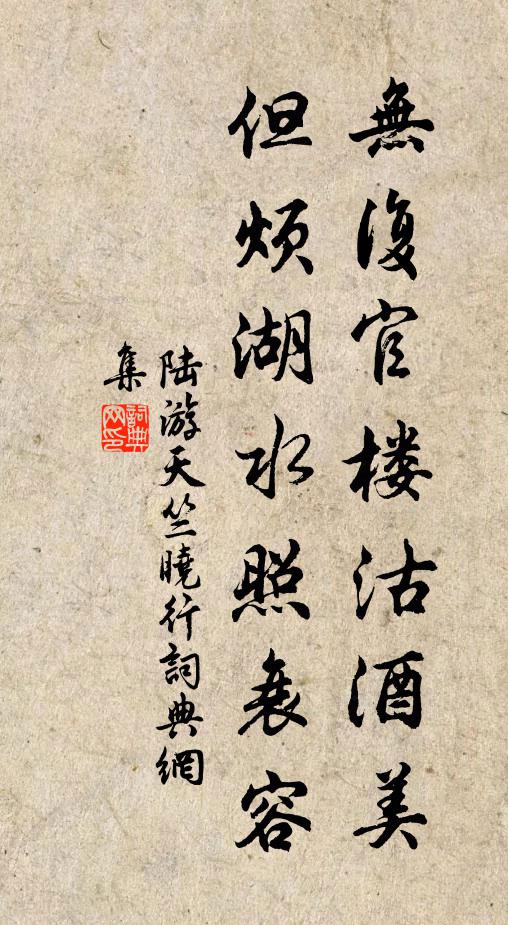 無復官楼沽酒美
但烦湖水照衰容
陆游天竺曉行詞典網
集
詞典
网印